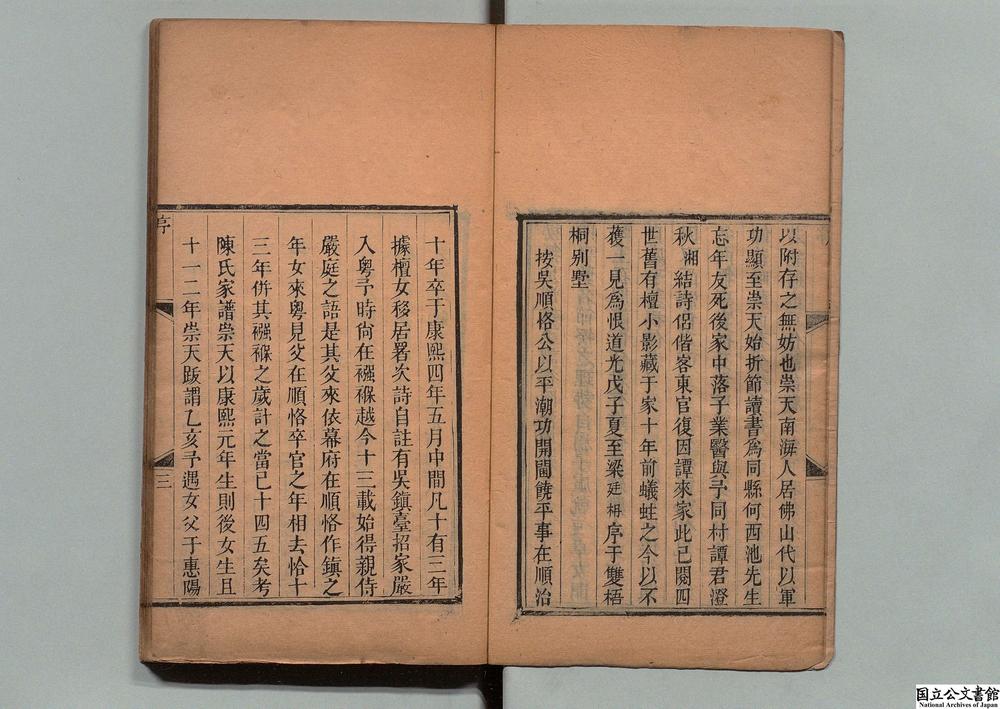 以附存之無妨也崇天南海人居佛山代以軍
功顯至崇天始折節讀書爲同縣何西池先生
忘年友死後家中落子業醫與予同村譚君澄
秋湘結詩侶偕客東官復因譚來家此已閱四
世舊有檀小影藏于家十年前蟻蛀之今以不
獲一見爲恨道光戊子夏至梁廷枏序于雙梧
桐別墅
按吳順恪公以平潮功開閫饒平事在順治
十年卒于康熙四年五月中間凡十有三年
據檀女移居署次詩自註有吳鎭臺招家嚴
入粵予時尙在襁褓越今十三載始得親侍
嚴庭之語是其父來依幕府在順恪作鎭之
年女來粵見父在順恪卒官之年相去恰十
三年併其襁褓之歲計之當已十四五矣考
陳氏家譜崇天以康熙元年生則後女生且
十一二年崇天跋謂乙亥予遇女父于惠陽
序
三
国立公文書館
National Archives of Japan